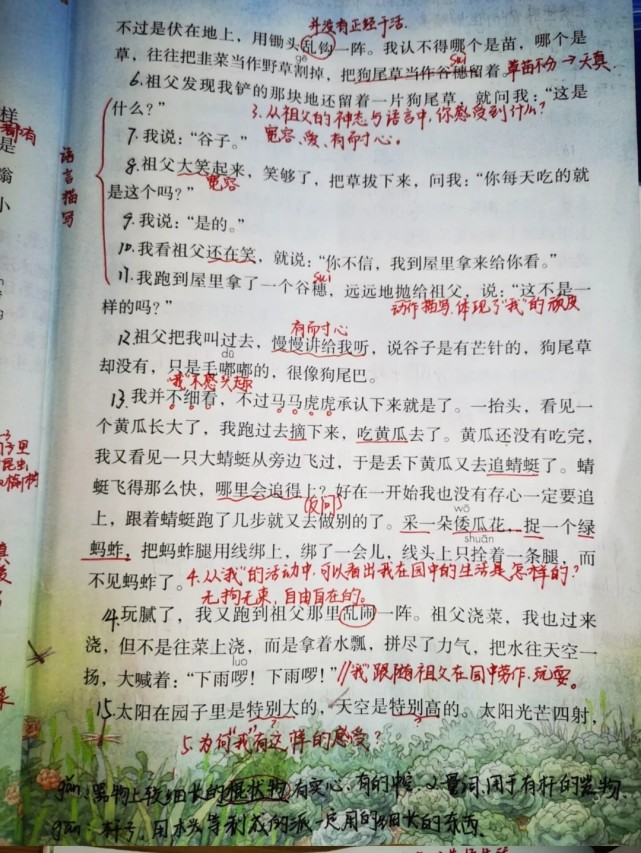 并没有正经干活.
不过是伏在地上，用锄头乱钩一阵。我认不得哪个是苗，哪个是
gē
suì
草，往往把韭菜当作野草割掉，把狗尾草当作谷穗留着。草苗不分→天真.
6.祖父发现我铲的那块地还留着一片狗尾草，就问我：“这是
什么？”
3.从祖父的神态与语言中,你感受到什么?
7.我说：“谷子。”
宽容、爱、有耐心。
8.祖父大笑起来，笑够了，把草拔下来，问我：“你每天吃的就
宽容
是这个吗？”
语言描写
9.我说：“是的。”
10.我看祖父还在笑，就说：“你不信，我到屋里拿来给你看。”
suì
11.我跑到屋里拿了一个谷穗，远远地抛给祖父，说：“这不是一
样的吗？”
动作描写,体现了“我”的顽皮
有耐心
12.祖父把我叫过去，慢慢讲给我听，说谷子是有芒针的，狗尾草
dū
却没有，只是毛嘟嘟的，很像狗尾巴。
“我”不感兴趣
13.我并不细看，不过马马虎虎承认下来就是了。一抬头，看见一
个黄瓜长大了，我跑过去摘下来，吃黄瓜去了。黄瓜还没有吃完，
我又看见一只大蜻蜓从旁边飞过，于是丢下黄瓜又去追蜻蜓了。蜻
蜓飞得那么快，哪里会追得上？好在一开始我也没有存心一定要追
(反问)
wō
上，跟着蜻蜓跑了几步就又去做别的了。采一朵倭瓜花，捉一个绿
shuān
蚂蚱，把蚂蚱腿用线绑上，绑了一会儿，线头上只拴着一条腿，而
不见蚂蚱了。
4.从“我”的活动中,可以看出我在园中的生活是怎样的?
无拘无束,自由自在的。
14.玩腻了，我又跑到祖父那里乱闹一阵。祖父浇菜，我也过来
浇，但不是往菜上浇，而是拿着水瓢，拼尽了力气，把水往天空一
luo
扬，大喊着：“下雨啰！下雨啰！”
//“我”跟随祖父在园中劳作,玩耍。
15.太阳在园子里是特别大的，天空是特别高的。太阳光芒四射，
5.为何“我”有这样的感受?
gǎn:器物上较细长的棍状物,有实心、有的中空.
gān:杆子,用木头等制成的派一定用的细长的东西.